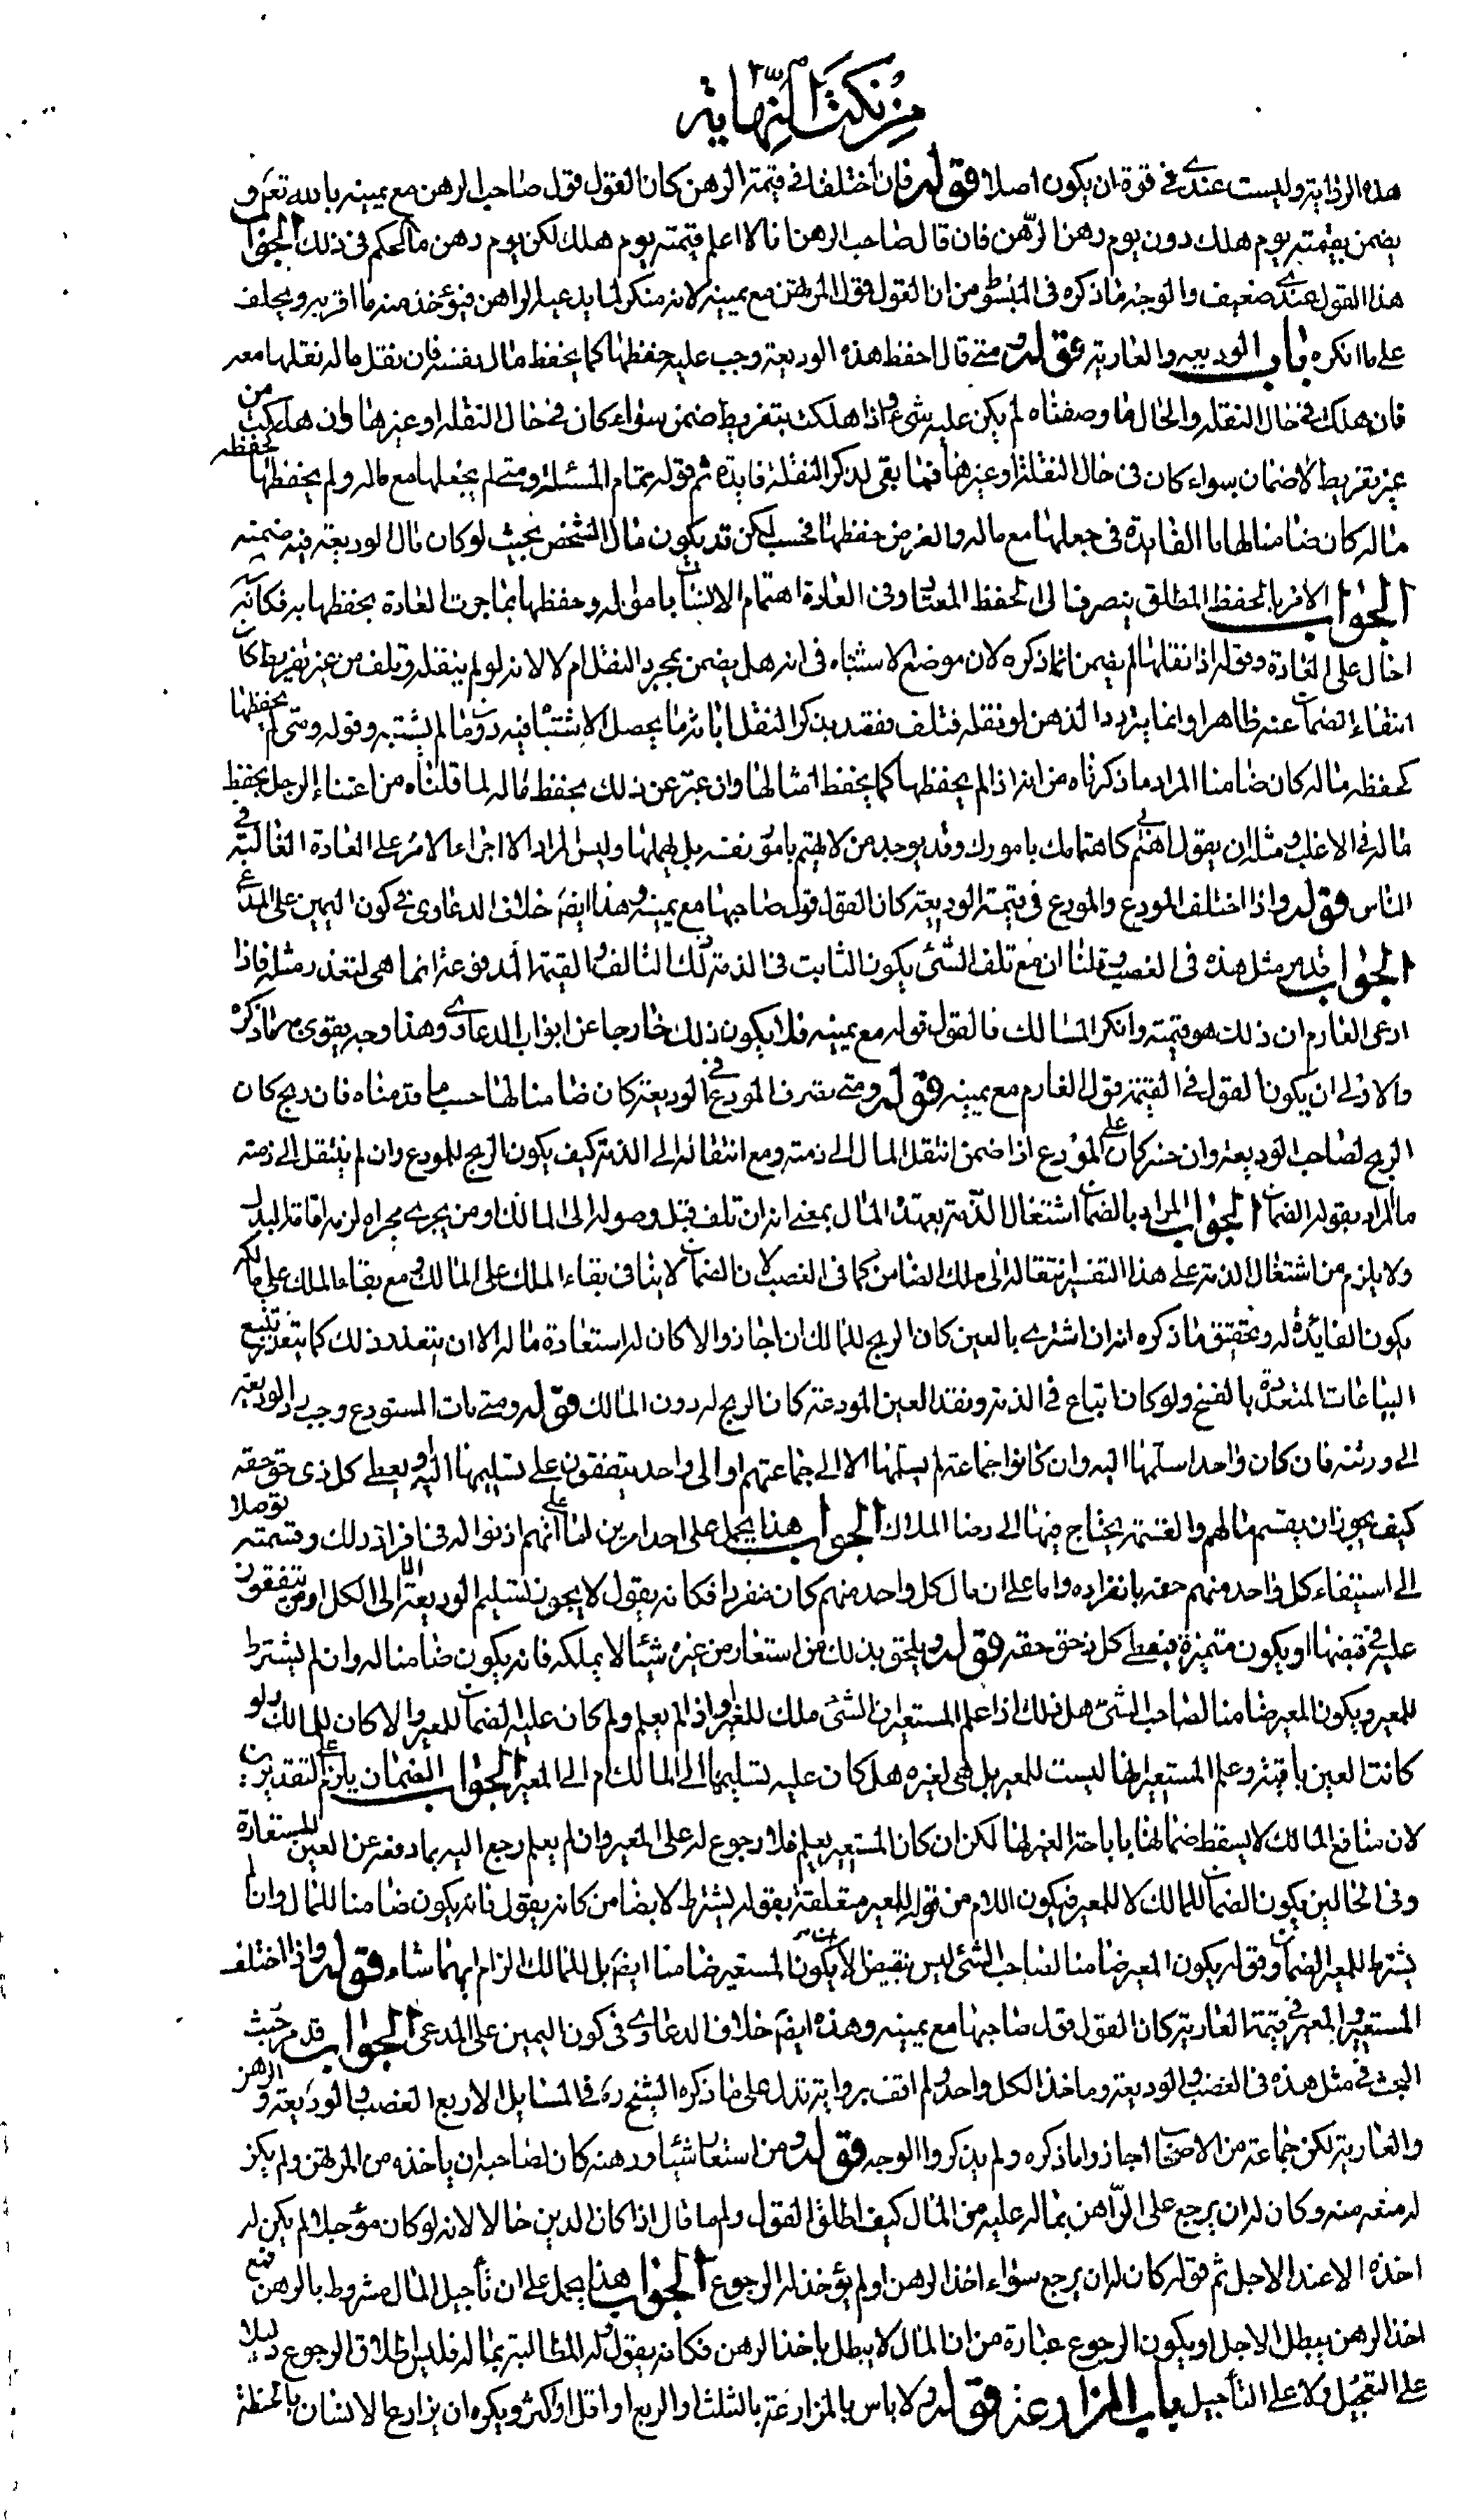 من نكت النهاية
هذه الرواية وليست عندي في قوة ان يكون اصلا قوله فان اختلفا في قيمة الرهن كان القول قول صاحب الرهن مع يمينه بالله تعم و
يضمن بقيمته يوم هلك دون يوم رهن الرهن فان قال صاحب الرهن انا لا اعلم قيمته يوم هلك لكن يوم رهن ما الحكم في ذلك الجواب
هذا القول عندي ضعيف والوجه ما ذكره في المبسوط من ان القول قول المرتهن مع يمينه لانه منكر لما يدعيه الراهن فيؤخذ منه ما اقر به ويحلف
على ما انكره باب الوديعه والعارية قوله متى قال احفظ هذه الوديعة وجب عليه حفظها كما يحفظ مال نفسه فان نقل ماله نقلها معه
فان هلكت في حال النقلة والحال ما وصفناه لم يكن عليه شيء واذا هلكت بتفريط ضمن سواء كان في حال النقلة او غيرها وان هلكت من
غير تفريط لاضمان سواء كان في حال النقلة او غيرها فما بقي لذكر النقلة فايدة ثم قوله بتمام المسئلة ومتى لم يجعلها مع ماله ولم يحفظها كحفظه
ماله كان ضامنا لها ما الفايدة في جعلها مع ماله والغرض حفظها فحسب لكن قد يكون مال الشخص بحيث لو كان مال الوديعة فيه ضمنه
الجواب الامر بالحفظ المطلق ينصرف الى الحفظ المعتاد وفي العادة اهتمام الانسان باموا له وحفظها بما جرت العادة بحفظها به فكانه
احال على العادة وقوله اذا نقلها لم يضمن انما ذكره لان موضع الاشتباه في انه هل يضمن بمجرد النقل ام لا لانه لو لم ينقله وتلف من غير تفريط كان
انتفاء الضمان عنه ظاهرا وانما يتردد الذهن لو نقله فتلف فقصد بذكر النقل ابانة ما يحصل الاشتباه فيه دون ما لم يشتبه وقوله ومتى لم يحفظها
كحفظه ماله كان ضامنا المراد ما ذكرناه من انه اذا لم يحفظها كما يحفظ امثالها وان عبر عن ذلك بحفظ ماله لما قلناه من اعتناء الرجل بحفظ
ماله في الاغلب ومثله ان يقول اهتم في كاهتمامك بامورك وقد يوجد من لا يهتم بامور نفسه بل يهملها وليس المراد الا اجراء الامر على العادة الغالبة في
الناس قوله واذا اختلف المودع والمودع في قيمة الوديعة كان القول قول صاحبها مع يمينه وهذا ايضم خلاف الدعاوى في كون اليمين على المدعي
الجواب قد مر مثل هذه في الغصب وقلنا ان مع تلف الشئ يكون الثابت في الذمة ذلك التالف والقيمة المدفوعة انما هي لتعذر مثله فاذا
ادعى الغارم ان ذلك هو قيمته وانكر المالك فالقول قوله مع يمينه فلا يكون ذلك خارجا عن ابواب الدعاوى وهذا وجه يقوى به ما ذكره
والاولى ان يكون القول في القيمة قول الغارم مع يمينه قوله ومتى تصرف المودع في الوديعة كان ضامنا لها حسب ما قدمناه فان ربح كان
الربح لصاحب الوديعة وان خسر كان على المودع اذا ضمن انتقل المال الى ذمته ومع انتقاله الى الذمة كيف يكون الربح للمودع وان لم ينتقل الى ذمته
ما المراد بقوله الضمان الجواب المراد بالضمان اشتغال الذمة بعهدة المال بمعنى انه ان تلف قبل وصوله الى المالك او من يجري مجراه لزمه اقامة البدل
ولا يلزم من اشتغال الذمة على هذا التفسير انتقاله الى ملك الضامن كما في الغصب لان الضمان لا ينافي بقاء الملك على المالك ومع بقاء الملك على مالكه
يكون الفائدة له وتحقيق ما ذكره انه ان اشترى بالعين كان الربح للمالك ان اجاز والا كان له استعادة ماله الا ان يتعذر ذلك كما يتعذر تتبع
البياعات المتعددة بالفسخ ولو كان ابتاع في الذمة ونقد العين المودعة كان الربح له دون المالك قوله ومتى مات المستودع وجب رد الوديعة
الى ورثته فان كان واحدا سلمها اليه وان كانوا جماعة لم يسلمها الا الى جماعتهم او الى واحد يتفقون على تسليمها اليه ويعطي كل ذي حق حقه
كيف يجوز ان يقسم مالهم والقسمة يحتاج فيها الى رضا الملاك الجواب هذا يحمل على احد امرين اما على انهم اذنوا له في افراز ذلك وقسمته توصلا
الى استيفاء كل واحد منهم حقه بانفراده واما على ان مال كل واحد منهم كان منفردا فكانه يقول لا يجوز تسليم الوديعة الا الى الكل او من يتفقون
على قبضها او يكون متميزة فيعطي كل ذي حق حقه قوله ويلحق بذلك من استعار من غيره شيئا لا يملكه فانه يكون ضامنا له وان لم يشترط
للمعير ويكون المعير ضامنا لصاحب الشئ هل ذلك اذا علم المستعير ان الشئ ملك للغير او اذا لم يعلم ولم كان عليه الضمان للمعير والا كان للمالك ولو
كانت العين باقية وعلم المستعير انها ليست للمعير بل هي لغيره هل كان عليه تسليمها الى المالك ام الى المعير الجواب الضمان يلزم على التقديرين
لان منافع المالك لا يسقط ضمانها باباحة الغير لها لكن ان كان المستعير يعلم فلا رجوع له على المعير وان لم يعلم رجع اليه بما دفعه عن العين المستعارة
وفي الحالين يكون الضمان للمالك لا للمعير فيكون اللام من قوله للمعير متعلقة بقوله يشترط لا بضامن كانه يقول فانه يكون ضامنا للمال وان لم
يشترط للمعير الضمان وقوله يكون المعير ضامنا لصاحب الشئ ليس نقيض لان يكون المستعير ضامنا ايضم بل للمالك الزام ايهما شاء قوله واذا اختلف
المستعير والمعير في قيمة العارية كان القول قول صاحبها مع يمينه وهذه ايضم خلاف الدعاوي في كون اليمين على المدعي الجواب قد مر حيث
البحث في مثل هذه في الغصب والوديعة وماخذ الكل واحد ولم اقف برواية تدل على ما ذكره الشيخ ره في المسايل الاربع الغصب والوديعة و الرهن
والعارية لكن جماعة من الاصحاب اجازوا ما ذكره ولم يذكروا الوجه قوله ومن استعار شيئا ورهنه كان لصاحبه ان ياخذه من المرتهن ولم يكن
له منعه منه وكان له ان يرجع على الراهن بماله عليه من المال كيف اطلق القول ولم ما قال اذا كان الدين حالا لانه لو كان مؤجلا لم يكن له
اخذه الا عند الاجل ثم قوله كان له ان يرجع سواء اخذ الرهن او لم يؤخذ له الرجوع الجواب هذا يحمل على ان تأجيل المال مشروط بالرهن فمع
اخذ الرهن يبطل الاجل او يكون الرجوع عبارة من ان المال لا يبطل باخذ الرهن فكانه يقول له المطالبة بماله فليس اطلاق الرجوع دليلا
على التعجيل ولا على التأجيل باب المزارعة قوله ولا باس بالمزارعة بالثلث والربع او اقل او اكثر ويكره ان يزارع الانسان بالحنطة